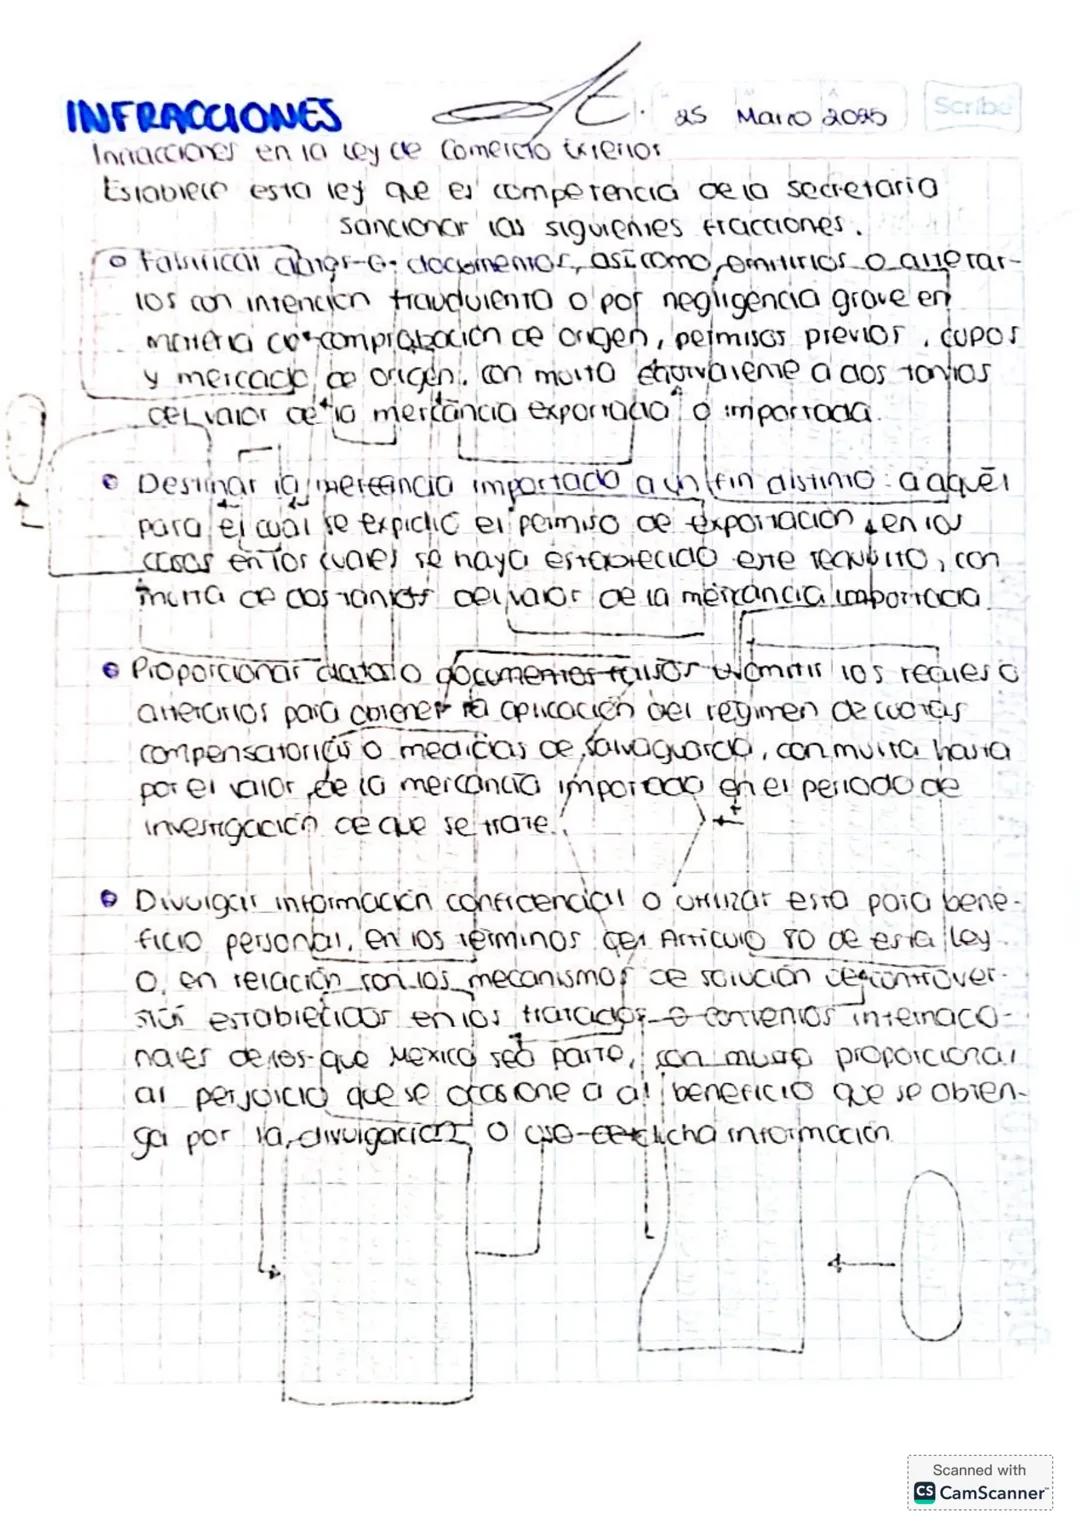 INFRACCIONES
25 Marzo 2025
Scribe
Infracciones en la Ley de Comercio Exterior
Establece esta ley que es competencia de la secretaria
sancionar las siguientes fracciones.
Falsificar documentos, así como omitirlos o alterar-
los con intención fraudulenta o por negligencia grave en
materia comprobación de origen, permisos previos, cupos
y mercado de origen. con multa equivalente a dos tantos
del valor de la mercancia exportada o importada.
Destinar la mercancia importada a un fin distinto a aquél
para el cual se expidió el permiso de exportación, en los
casos en los cuales se haya establecido este requisito, con
multa de dos tantos del valor de la mercancia importada
Proporcionar datos o documentos falsos u omitir los reales o
alterarlos para obtener la aplicación del regimen de cuotas
compensatorias o medidas de salvaguarda, con multa hasta
por el valor de la mercancia importada en el periodo de
investigación de que se trate.
Divulgar información confidencial o utilizar esta para bene-
ficio personal, en los terminos del Articulo 80 de esta Ley
o, en relación con los mecanismos de solución de controver-
sias establecidos en los tratados o convenios internacio-
nales de los que Mexico sea parte, con multa proporcional
al perjuicio que se ocasione o al beneficio que se obten-
ga por la divulgación o uso de dicha información
Scanned with
CS CamScanner